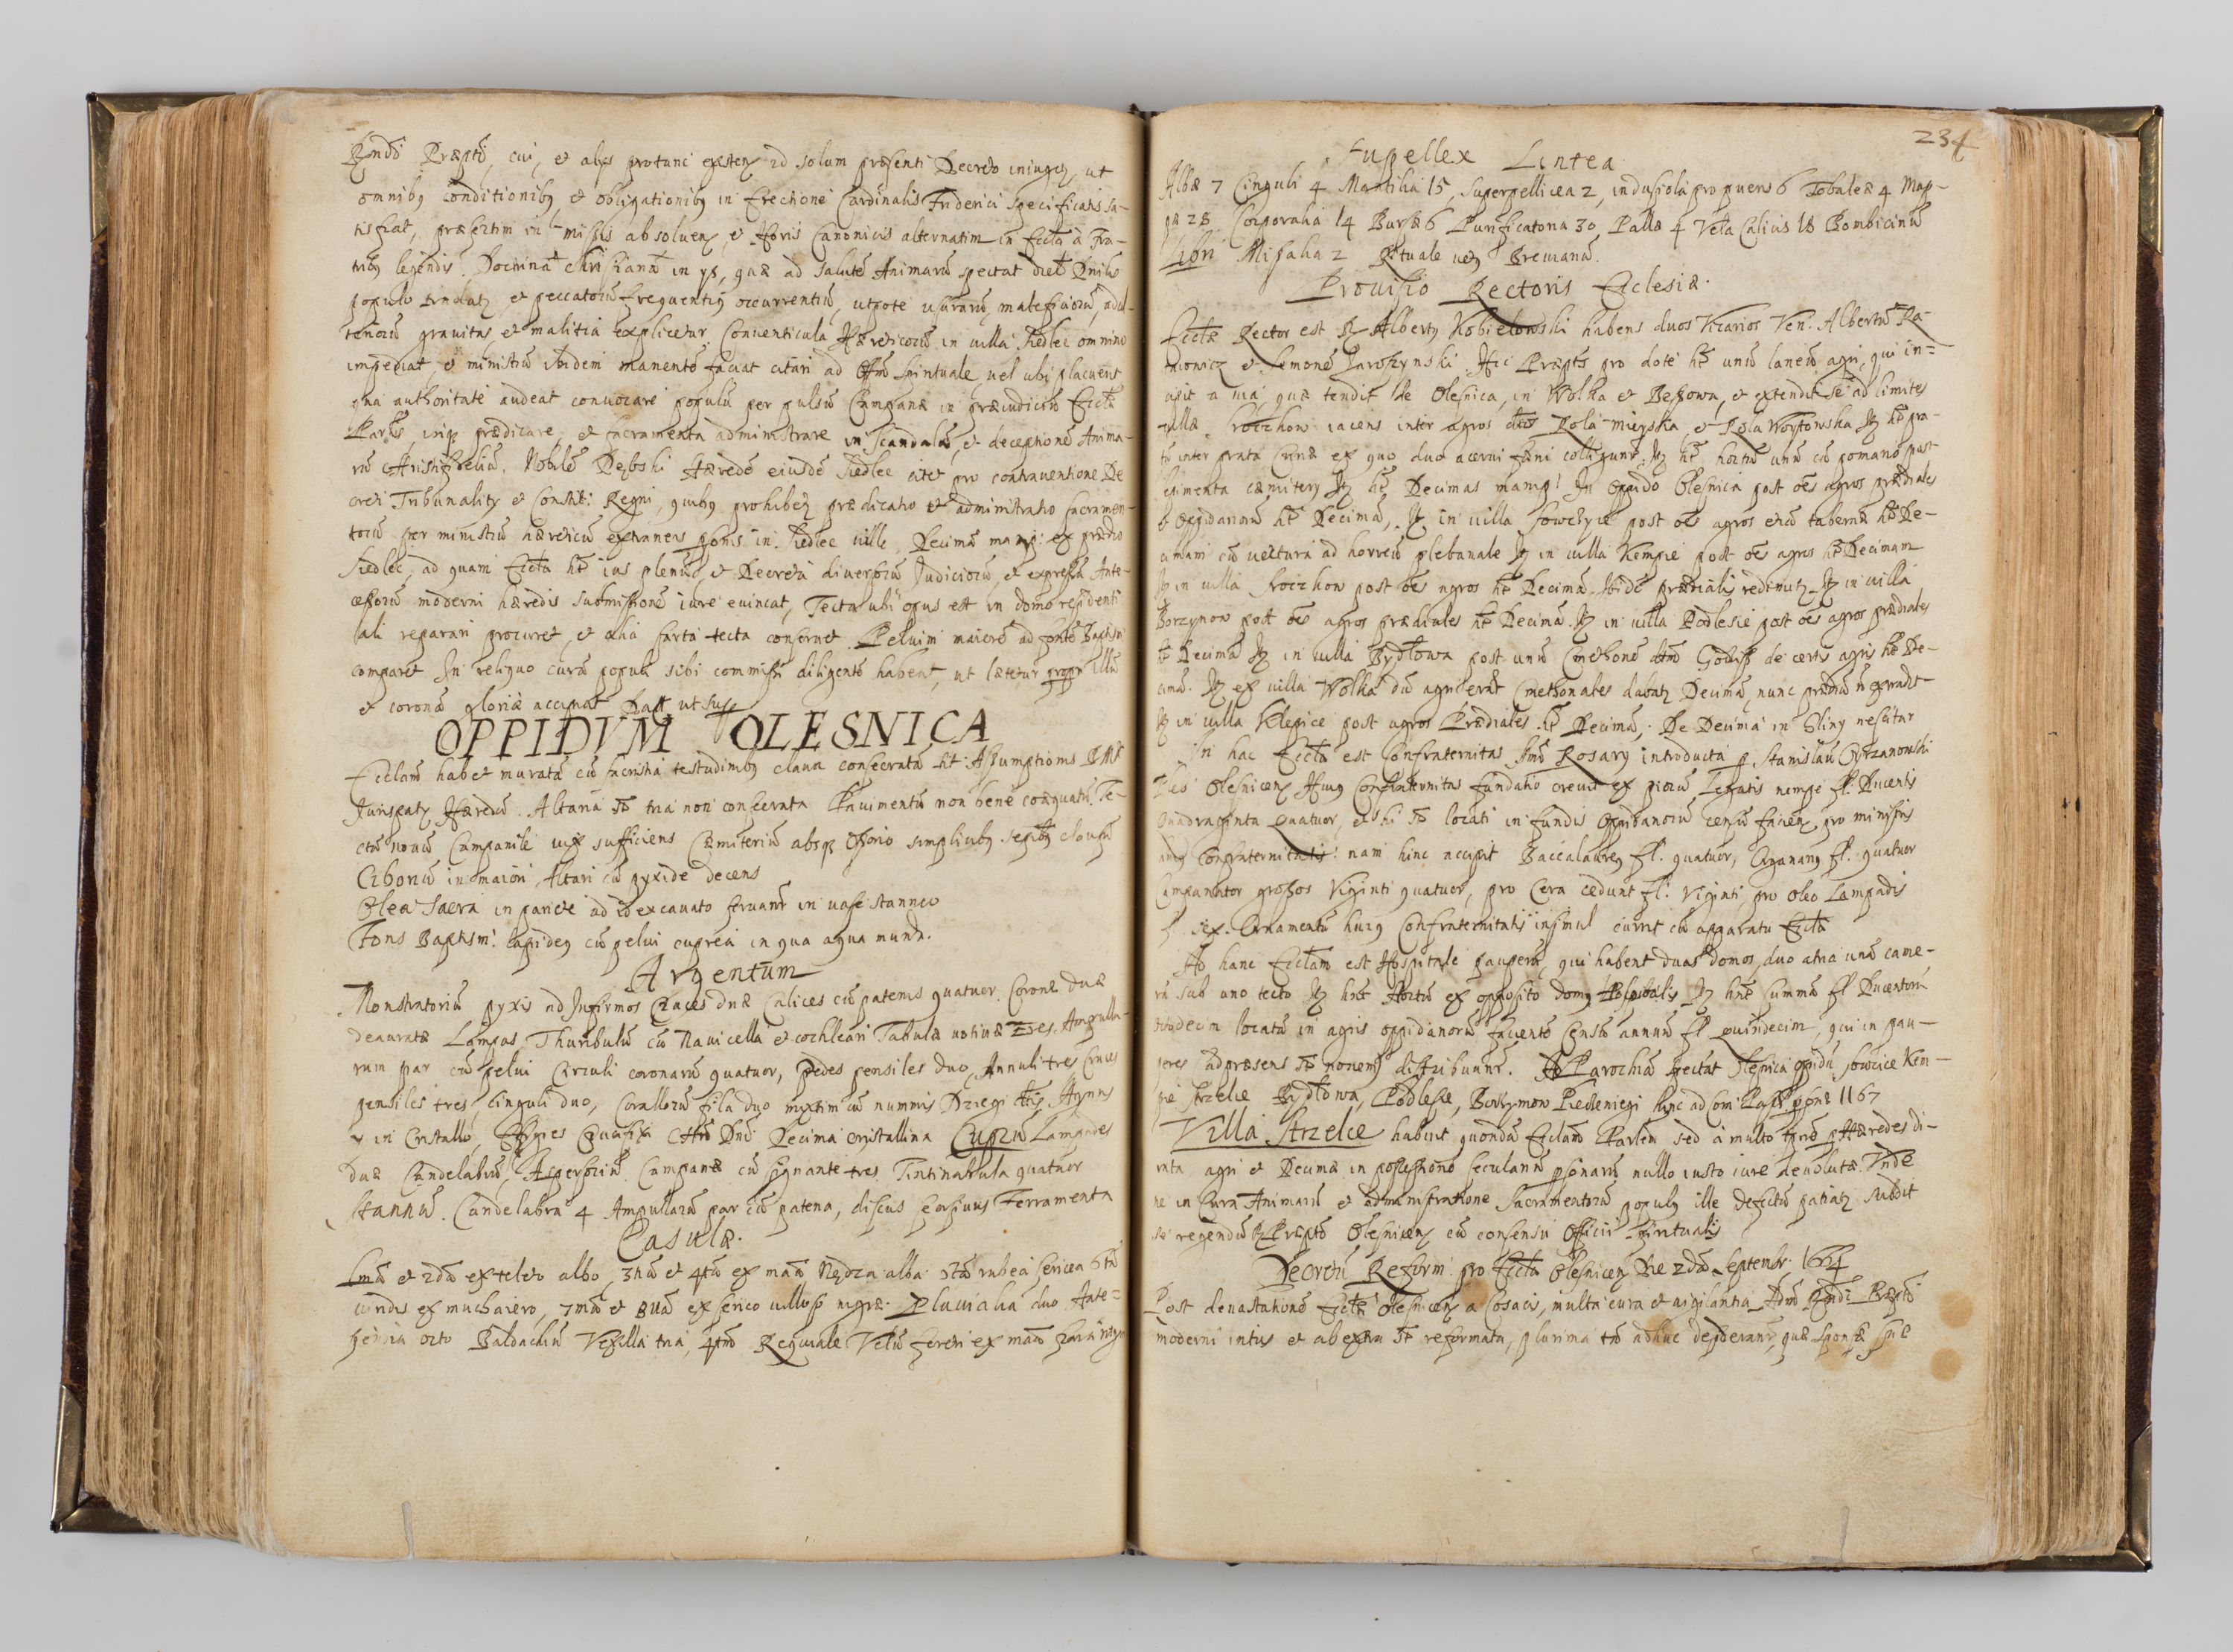 Rñdo Præpto, cui, et alys protunc existeñ id solum præsenti Decreto iniugit, ut
omnibꝫ conditionibꝫ et obligationibꝫ in Erectione Cardinalis Friderici specificatis sa-
tisfiat, præsertim in missis absolueñ, et Horis Canonicis alternatim in Eccla à Fra-
tribꝫ legendis. Doctrina Christiana in ys, quæ ad salutē Animarū spectat
populo et peccatorū frequentiꝫ occurrentiū, utpote usurarū, maleficiorū, adul-
teriorū grauitas, et malitia explicetur. Conuenticula Hæreticorū in uilla Siedlec omnino
impediat et ministrū ibidem manentē faciat citari ad Offm Spirituale uel ubi placuerit
qua authoritate audeat conuocare populū per pulsū Campanæ in præiudiciū Ecclæ
Parlis, ibiqꝫ prædicare, et sacramenta administrare in scandalū, et deceptionē Anima-
rū Christifideliū. Nobilē Dęboski Hæredē eiusdē Siedlec citet pro contrauentione De
creti Tribunalitꝫ et Constit: Regni, quibꝫ prohibetꝫ prædicatio et administratio sacramen-
torū per ministrū hæreticū extraneis in Siedlec uille. Decimā manip: ex prædio
Siedlec, ad quam Eccla ht ius plenū, et Decreta diuersorū Judiciorū, et expressā Ante-
cessorū moderni hæredis submissionē iure euincat, Tecta ubi opus est in domo residenti
ali reparari procuret, et alia sarta tecta conseruet. Peluim maiorē ad fontē Baptismi
comparet. In reliquo curā populi sibi commissi diligentē habeat, ut lætetur propr illū
et coronā gloriæ accipiat Datt ut sup.
OPPIDVM OLESNICA
Ecclam habet muratā cū sacristia testudinibꝫ clausa consecratā tit: Assumptionis BMV
Jurispatꝫ Hæredū. Altaria st tria non consecrata Pauimentū non bene coæquatū. Te-
ctū nouū Campanile uix sufficiens Cæmiteriū absqꝫ Ossorio simplicibꝫ sepibꝫ clausū
Ciboriū in maiori Altari cū pyxide decens
Olea Sacra in pariete ad id excauato seruantr in uase stanneo
Fons Baptism: lapideꝫ cū pelui cuprea in qua aqua munda.
Argentum
Monstratoriū pyxis ad Infirmos Cruces duæ Calices cū patenis quatuor. Coronæ duæ
deauratæ Lampas Thuribulū cū Nauicella et cochleari Tabulæ uotiuæ Tres. Ampulla-
rum par cū pelui Circuli coronarū quatuor, Pedes pensiles duo, Annuli tres, Cruces
pensiles tres, cinguli duo, Corallorū fila duo mixtim cū nummis Agnus
in Cristallo, Effigies Crucifixi Chri Dni Decima cristallina Cuprū Lampades
duæ Candelabrū, Aspersoriū Campanæ cū signante tres Tintinabula quatuor
Stannū. Candelabra 4 Ampullarū par cū patena, discus Ferramenta
Casulæ.
1mā et 2dā ex teleto albo, 3tiā et 4tā ex maā alba. 5tā rubea sericea 6tā
uiridis ex muchaiero, 7mā et 8uā ex serico uilloso nigræ. Pluuialia duo Ante-
pendia octo Baldachim Vexilla tria, 4tum Requiale Velū feretri ex maā
234
Supellex Lintea
Albæ 7 Cinguli 4 Mantilia 15, Superpellicea 2, indusiola pro pueris 6 Tobaleæ 4 Map-
pæ 28 Corporalia 14 Bursæ 6 Purificatoria 30, Pallæ 4 Vela Calicis 18 Bombicinū
Libri Missalia 2 Rituale uetꝫ Breuiariū.
Prouisio Rectoris Ecclesiæ.
Ecclæ Rector est R Albertꝫ Kobielowski habens duos Vicarios Ven: Albertū Ra-
et Simonē Jaroszynski. Hic Præptꝫ pro dote ht unū laneū agri, qui in-
cipit a uia, quæ tendit de Olesnica, in Wolka et Beszowa, et extendit se ad limites
uillæ Sroczkow iacens inter agros ctos Rola mieyska et Rola Woytowska Itꝫ ht pra-
tū inter prata ex quo duo acerui fæni colliguntr. Itꝫ ht hortū unū cū pomario post
sepimenta cæmitery Itꝫ ht Decimas manip! In Oppido Olesnica post oēs agros prædiales
et Oppidanorū ht Decimā, Itꝫ in uilla Sowczyce post oēs agros etiā tabernæ ht De-
cimam cū uectura ad horreū plebanale Itꝫ in uilla Kempie post oēs agros ht Decimam
Itꝫ in uilla Sroczkow post oēs agros ht Decimā. Ibidē prædialis redimitꝫ. Itꝫ in uilla
Borzymow post oēs agros prædiales ht Decimā. Itꝫ in uilla Podlesie post oēs agros prædiales
ht Decimā Itꝫ in uilla Bydłowa post unū Cmethonē de certis agris ht De-
cimā. Itꝫ ex uilla Wolka dū agri erāt Cmethonales dabatꝫ Decima, nunc prædiū
Itꝫ in uilla Klępice post agros Prædiales ht Decimā. De Decima in Sliny nescitur
In hac Eccla est Confraternitas Smi Rosary introducta p Stanislaū Chrzanowski
Olesniceñ Huiꝫ Confraternitas fundatio creuit ex piorū Legatis nempe fl. Ducentis
Quadraginta Quatuor, et hi st locati in fundis Oppidanorū censū facieñ pro ministris
Confraternitatis: nam hinc accipit Baccalaureꝫ fl. quatuor, Organariꝫ fl. quatuor
Campanator grossos Viginti quatuor, pro Cera cedunt fl: Viginti, pro oleo Lampadis
sex. Ornamentū huiꝫ Confraternitatis insimul currit cū apparatu Ecclæ
Ad hanc Ecclam est Hospitale pauperū, qui habent duas domos, duo atria unū came-
rā sub uno tecto Itꝫ hnt Hortū ex opposito domꝫ Hospitalis Itꝫ hnt summā fl Ducentorū
octodecim locatū in agris oppidanorū facientē Censū annuū fl Quindecim, qui in pau-
peres ad præsens st nouem distribuuntr. Ad Parochiā spectat Olesnica oppidū, Sowczice Kem-
pie Strzelce Bydłowa, Podlesie, Borzymow Pieczeniegi Hinc ad Com Pasch psonæ 1167
Villa Strzelce habuit quondā Ecclam Parlem sed à multo tpre p Hæredes di-
ruta agri et Decimæ in possessionē seculariū psonarū nullo iusto iure deuolutæ. Inde
ne in Cura Animarū et administratione Sacramentorū populꝫ ille defectū patiatꝫ subdit
se regendū R Præpto Olesniceñ cū consensu Officii Spiritualis
Decretū Reform: pro Eccla Olesniceñ Die 2da Septembr. 1664
Post deuastationē Ecclæ Olesniceñ a Cosacis, multa cura et uigilantia Adm Rñdi Præpti
moderni intus et ab extra st reformata, plurima tn adhuc desiderantr, quæ Sponsæ